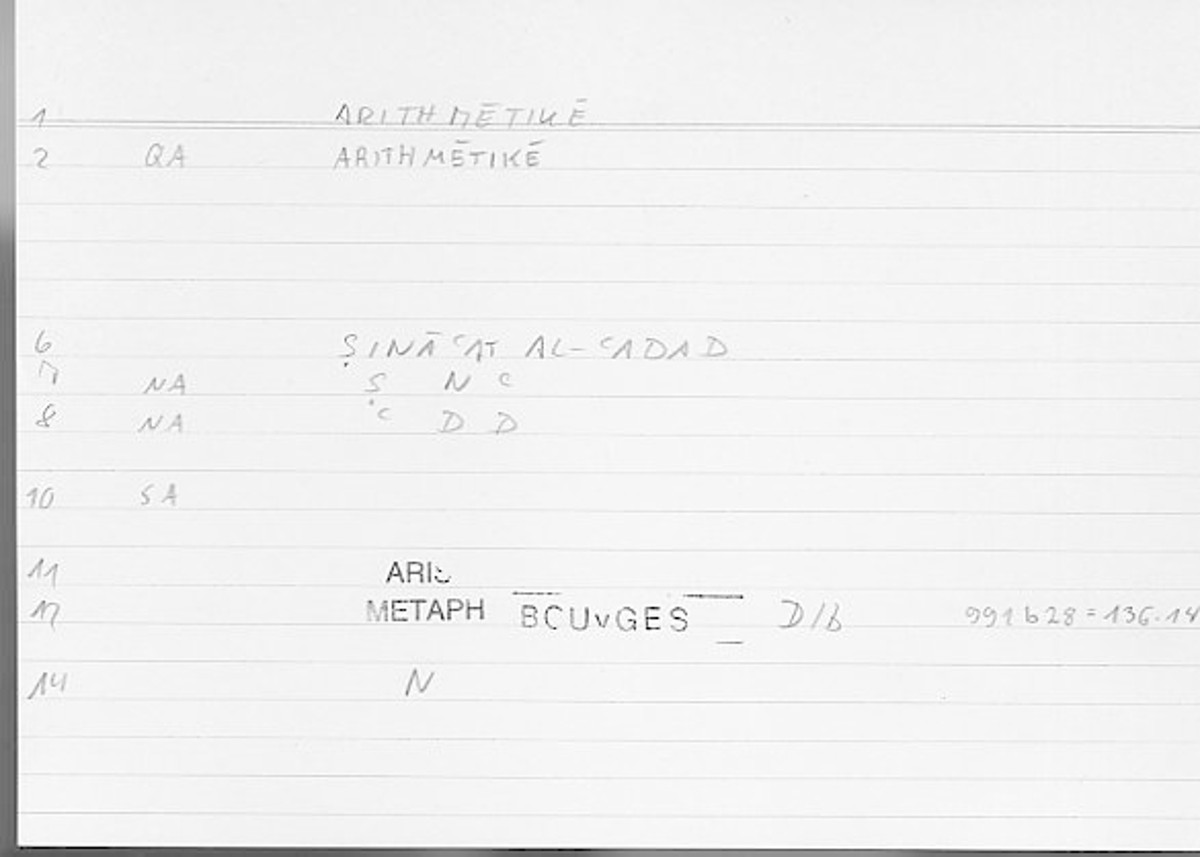 1 ARITHMĒTIKĒ
2 QA ARITHMĒTIKĒ
6 ṢINĀʿAT AL-ʿADAD
7 NA Ṣ N ʿ
8 NA ʿ D D
10 SA
11 ARIS
12 METAPH BCUvGES D/b 991b28=136.14
14 N